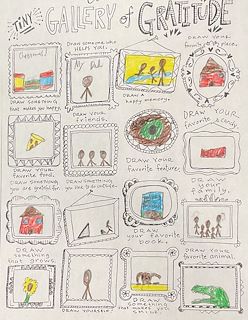 TINY GALLERY of GRATITUDE
DRAW SOMETHING
that makes you happy.
DRAW someone who
HELPS YOU.
My Dad
DRAW A
happy memory.
DRAW YOUR
favorite place.
DRAW YOUR
favorite food.
DRAW YOUR
friends.
DRAW YOUR
favorite
DRAW YOUR
favorite candy.
DRAW SOMEONE
you are grateful for.
DRAW SOMETHING
you like to do
DRAW
your favorite
book.
DRAW
your
family.
DRAW
something
that grows.
DRAW YOURSELF.
DRAW
something
that makes you
smile.
DRAW your
favorite animal.